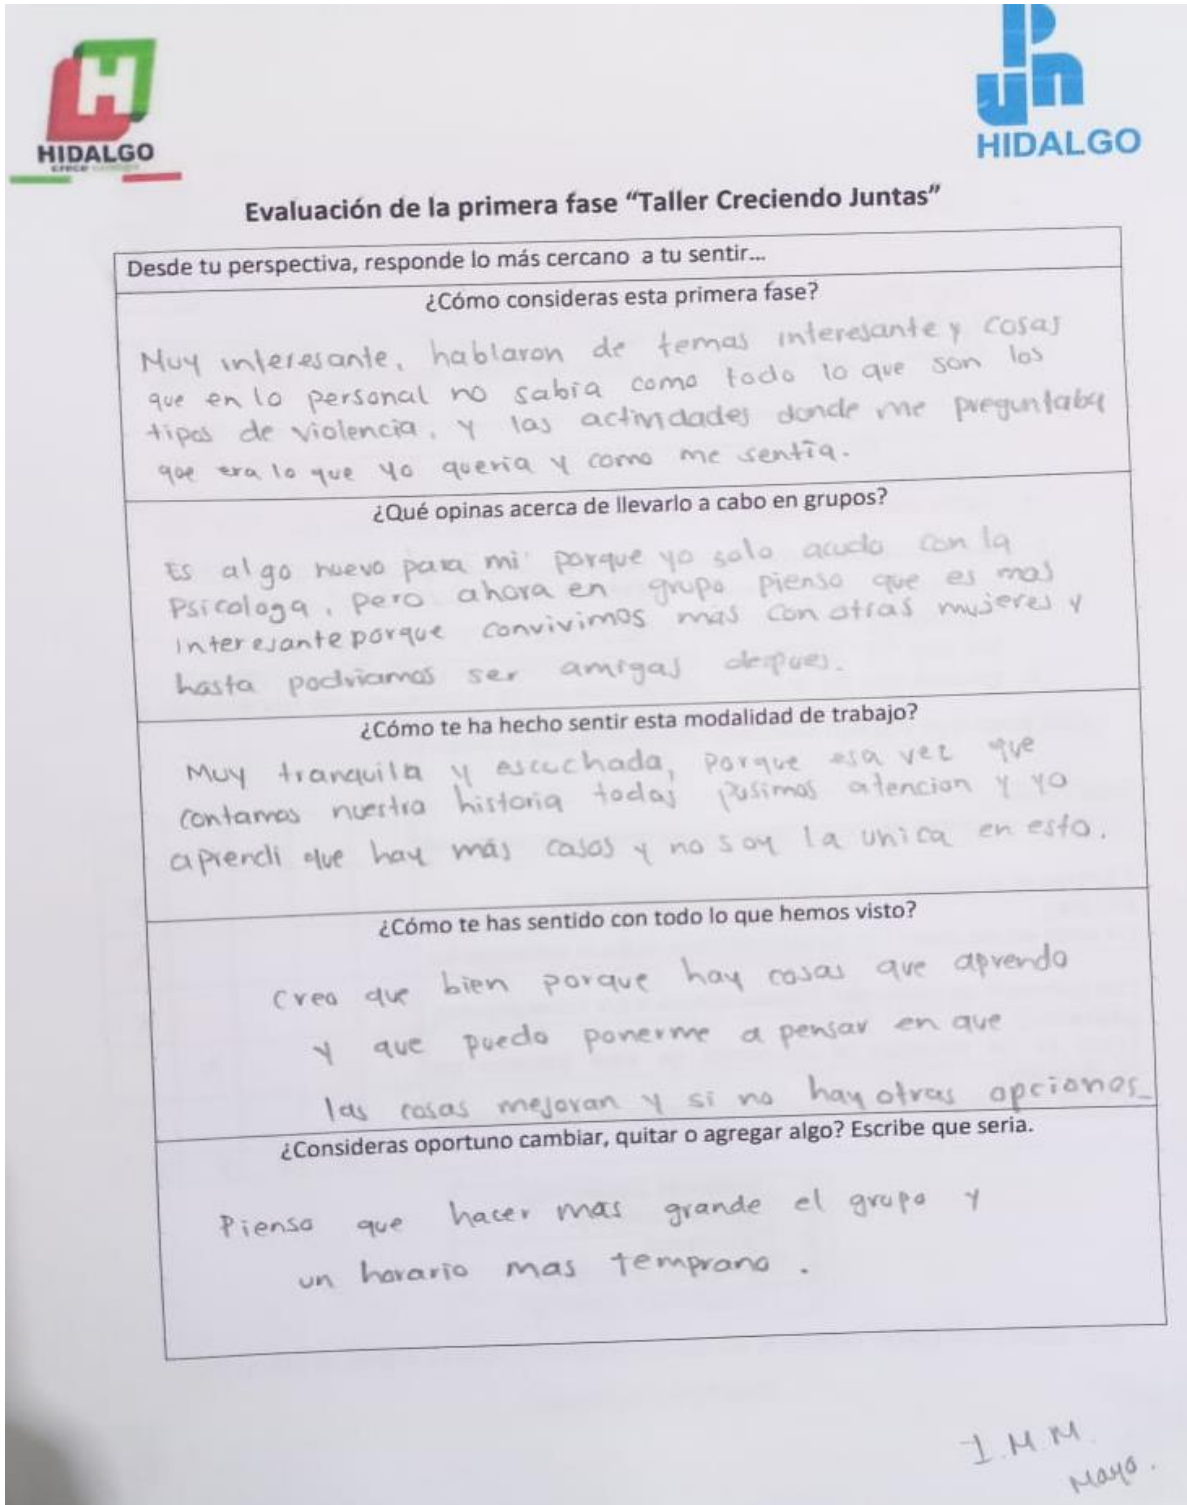 HIDALGO
crece
upn
HIDALGO
Evaluación de la primera fase “Taller Creciendo Juntas”
Desde tu perspectiva, responde lo más cercano a tu sentir...
¿Cómo consideras esta primera fase?
Muy interesante, hablaron de temas interesante y cosas
que en lo personal no sabia como todo lo que son los
tipos de violencia, y las actividades donde me preguntaba
que era lo que yo queria y como me sentia.
¿Qué opinas acerca de llevarlo a cabo en grupos?
Es algo nuevo para mi porque yo solo acudo con la
Psicologa, pero ahora en grupo pienso que es mas
interesante porque convivimos mas con otras mujeres y
hasta podriamos ser amigas despues.
¿Cómo te ha hecho sentir esta modalidad de trabajo?
Muy tranquila y escuchada, porque esa vez que
contamos nuestra historia todas pusimos atencion y yo
aprendi que hay más casos y no soy la unica en esto.
¿Cómo te has sentido con todo lo que hemos visto?
Creo que bien porque hay cosas que aprendo
y que puedo ponerme a pensar en que
las cosas mejoran y si no hay otras opciones_
¿Consideras oportuno cambiar, quitar o agregar algo? Escribe que seria.
Pienso que hacer mas grande el grupo y
un horario mas temprano.
I.M.M.
Mayo.